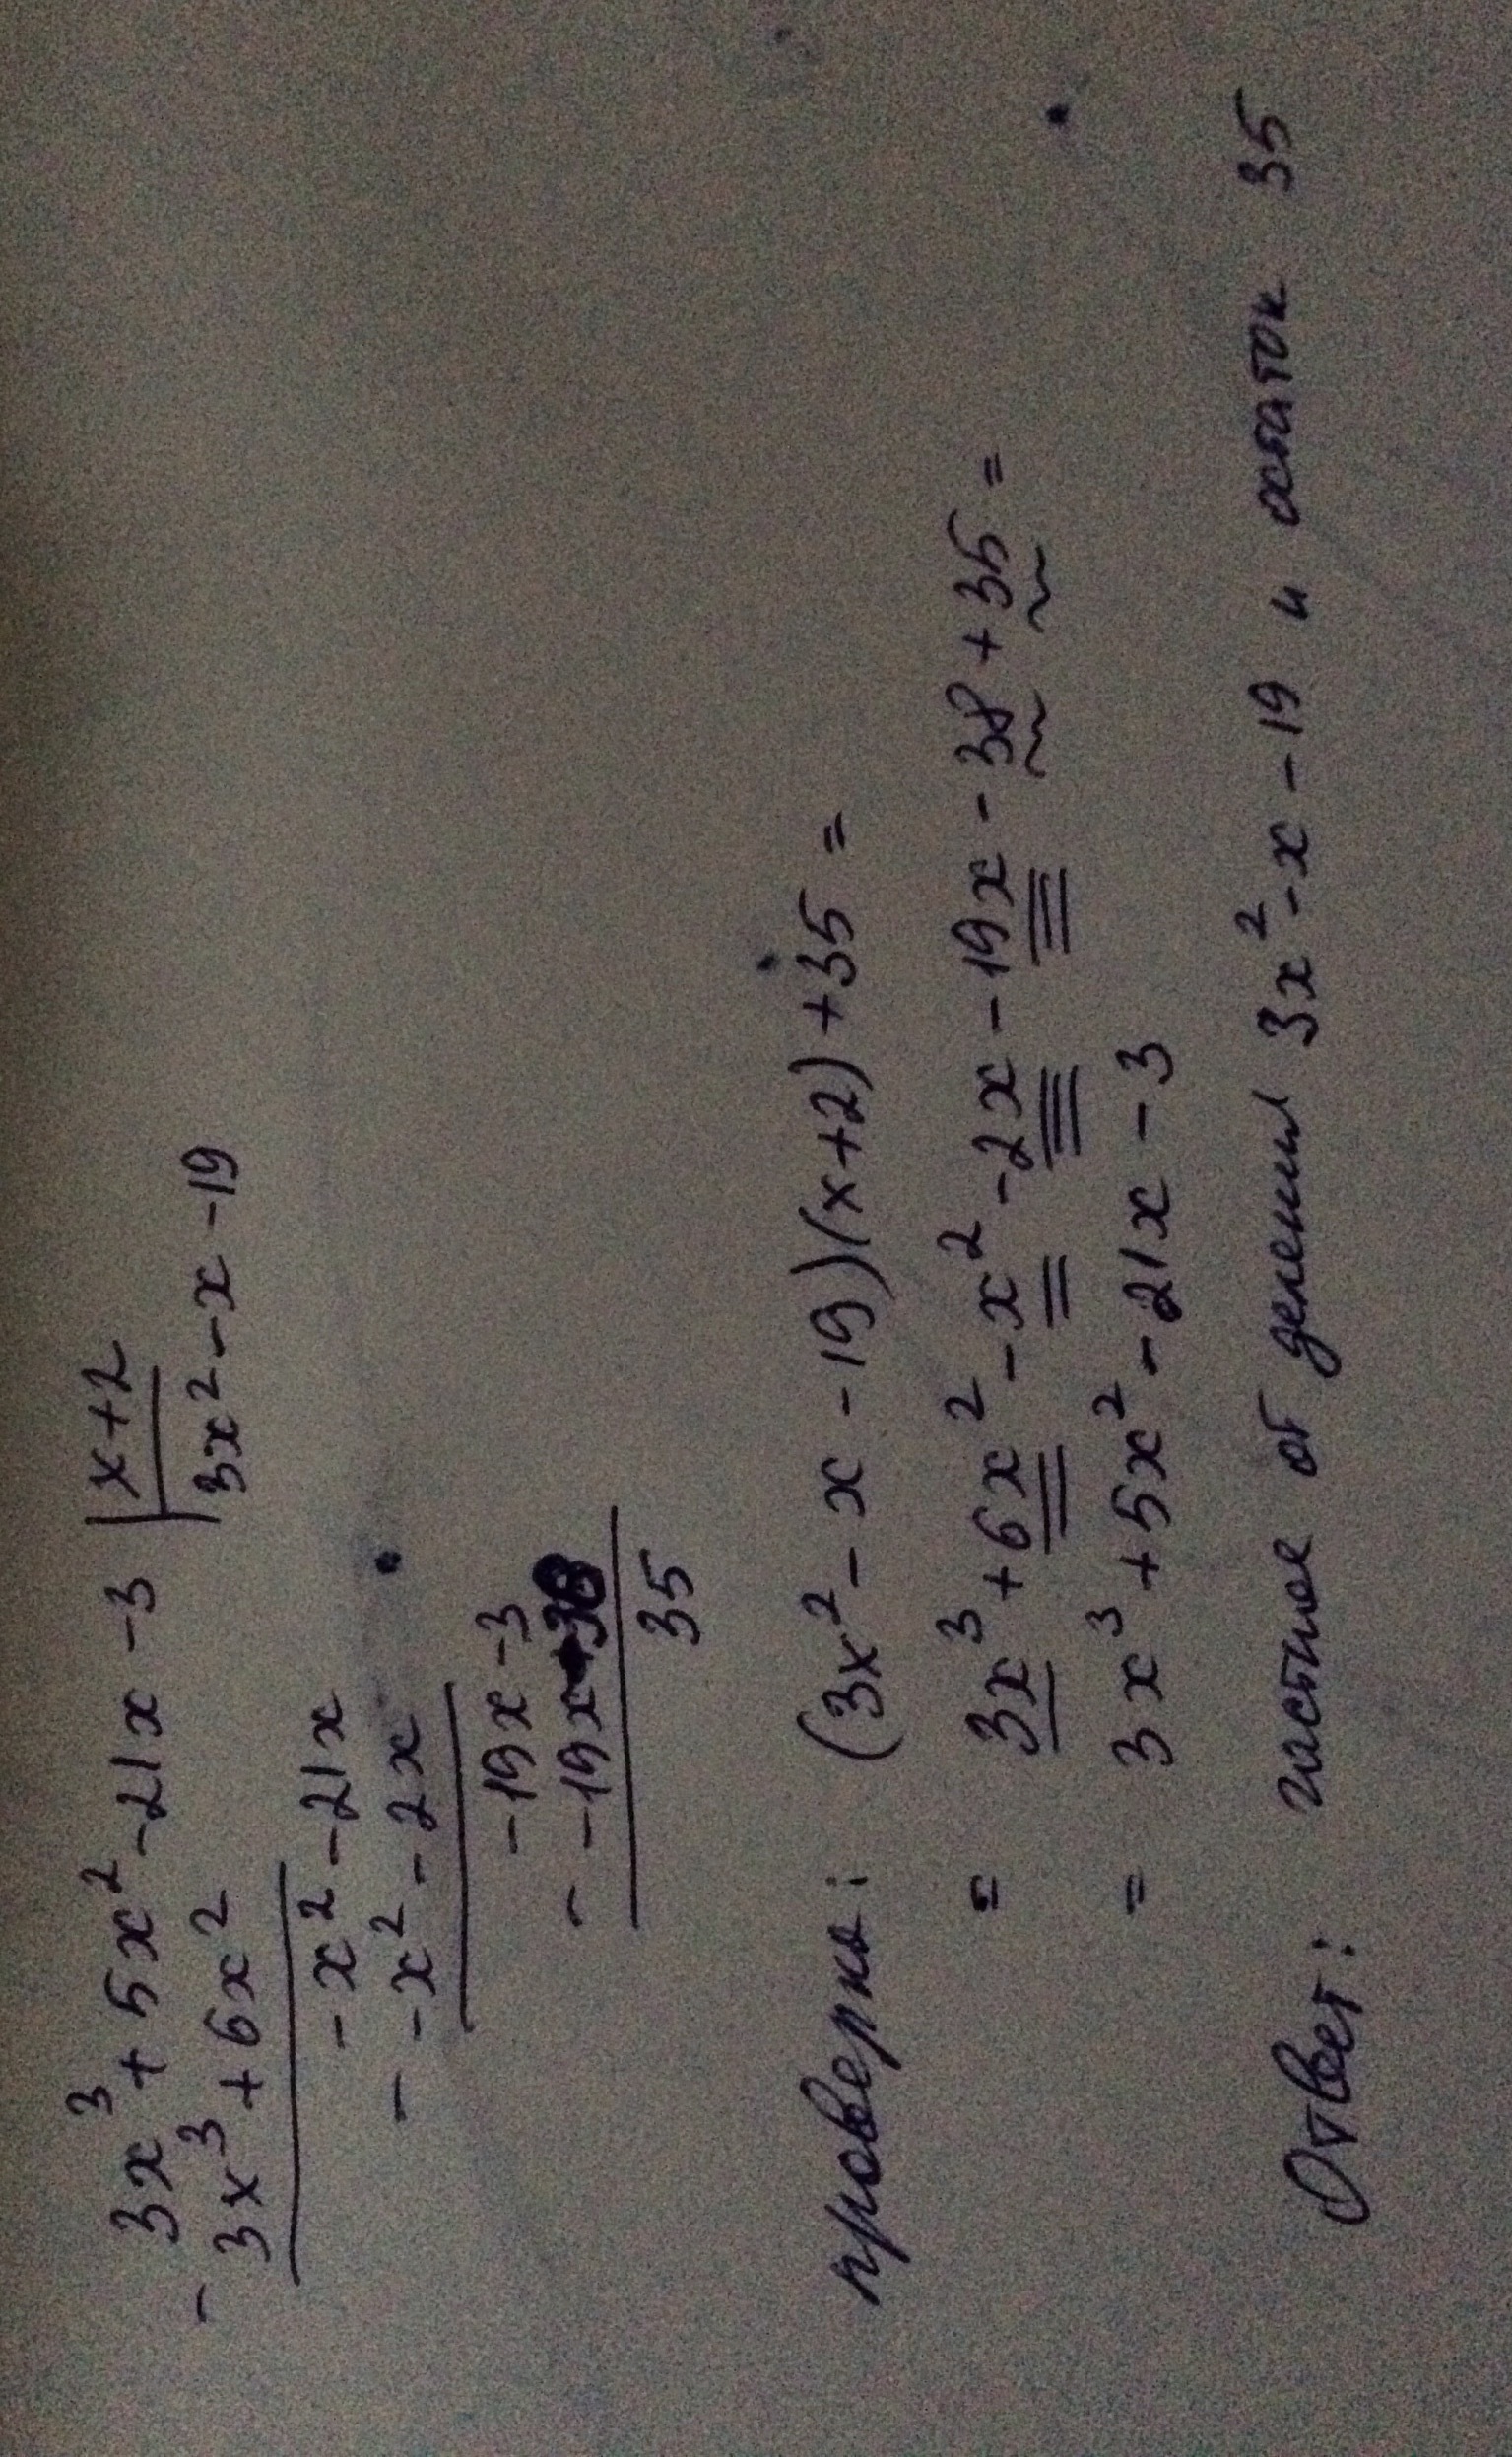 - 3x³ + 5x² - 21x - 3 | x + 2
3x³ + 6x² 3x² - x - 19
- x² - 21x
- - x² - 2x
- 19x - 3
- - 19x - 38
35
проверка: (3x² - x - 19)(x + 2) + 35 =
= 3x³ + 6x² - x² - 2x - 19x - 38 + 35 =
= 3x³ + 5x² - 21x - 3
Ответ: частное от деления 3x² - x - 19 и остаток 35